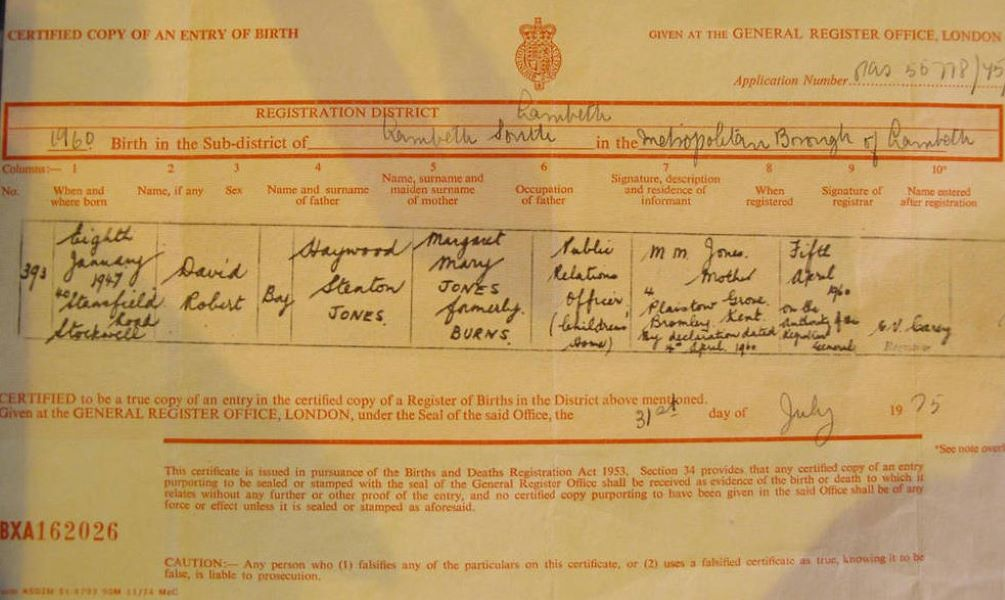 CERTIFIED COPY OF AN ENTRY OF BIRTH
GIVEN AT THE GENERAL REGISTER OFFICE, LONDON
Application Number PAS 55778/75
REGISTRATION DISTRICT Lambeth
1960 Birth in the Sub-district of Lambeth South in the Metropolitan Borough of Lambeth
Columns:— 1 2 3 4 5 6 7 8 9 10*
No.
When and
where born
Name, if any
Sex
Name and surname
of father
Name, surname and
maiden surname
of mother
Occupation
of father
Signature, description
and residence of
informant
When
registered
Signature of
registrar
Name entered
after registration
393
Eighth
January
1947
40
Stansfield
Road
Stockwell
David
Robert
Boy
Haywood
Stenton
JONES
Margaret
Mary
JONES
formerly
BURNS.
Public
Relations
Officer
(Childrens
Home)
M. M. Jones.
Mother
4
Plaistow Grove
Bromley Kent.
By declaration dated
4th April 1960
Fifth
April
1960
on the
authority of the
Registrar
General
Registrar
CERTIFIED to be a true copy of an entry in the certified copy of a Register of Births in the District above mentioned.
Given at the GENERAL REGISTER OFFICE, LONDON, under the Seal of the said Office, the 31st day of July 1975
*See note over
This certificate is issued in pursuance of the Births and Deaths Registration Act 1953. Section 34 provides that any certified copy of an entry
purporting to be sealed or stamped with the seal of the General Register Office shall be received as evidence of the birth or death to which it
relates without any further or other proof of the entry, and no certified copy purporting to have been given in the said Office shall be of any
force or effect unless it is sealed or stamped as aforesaid.
BXA162026
CAUTION:— Any person who (1) falsifies any of the particulars on this certificate, or (2) uses a falsified certificate as true, knowing it to be
false, is liable to prosecution.